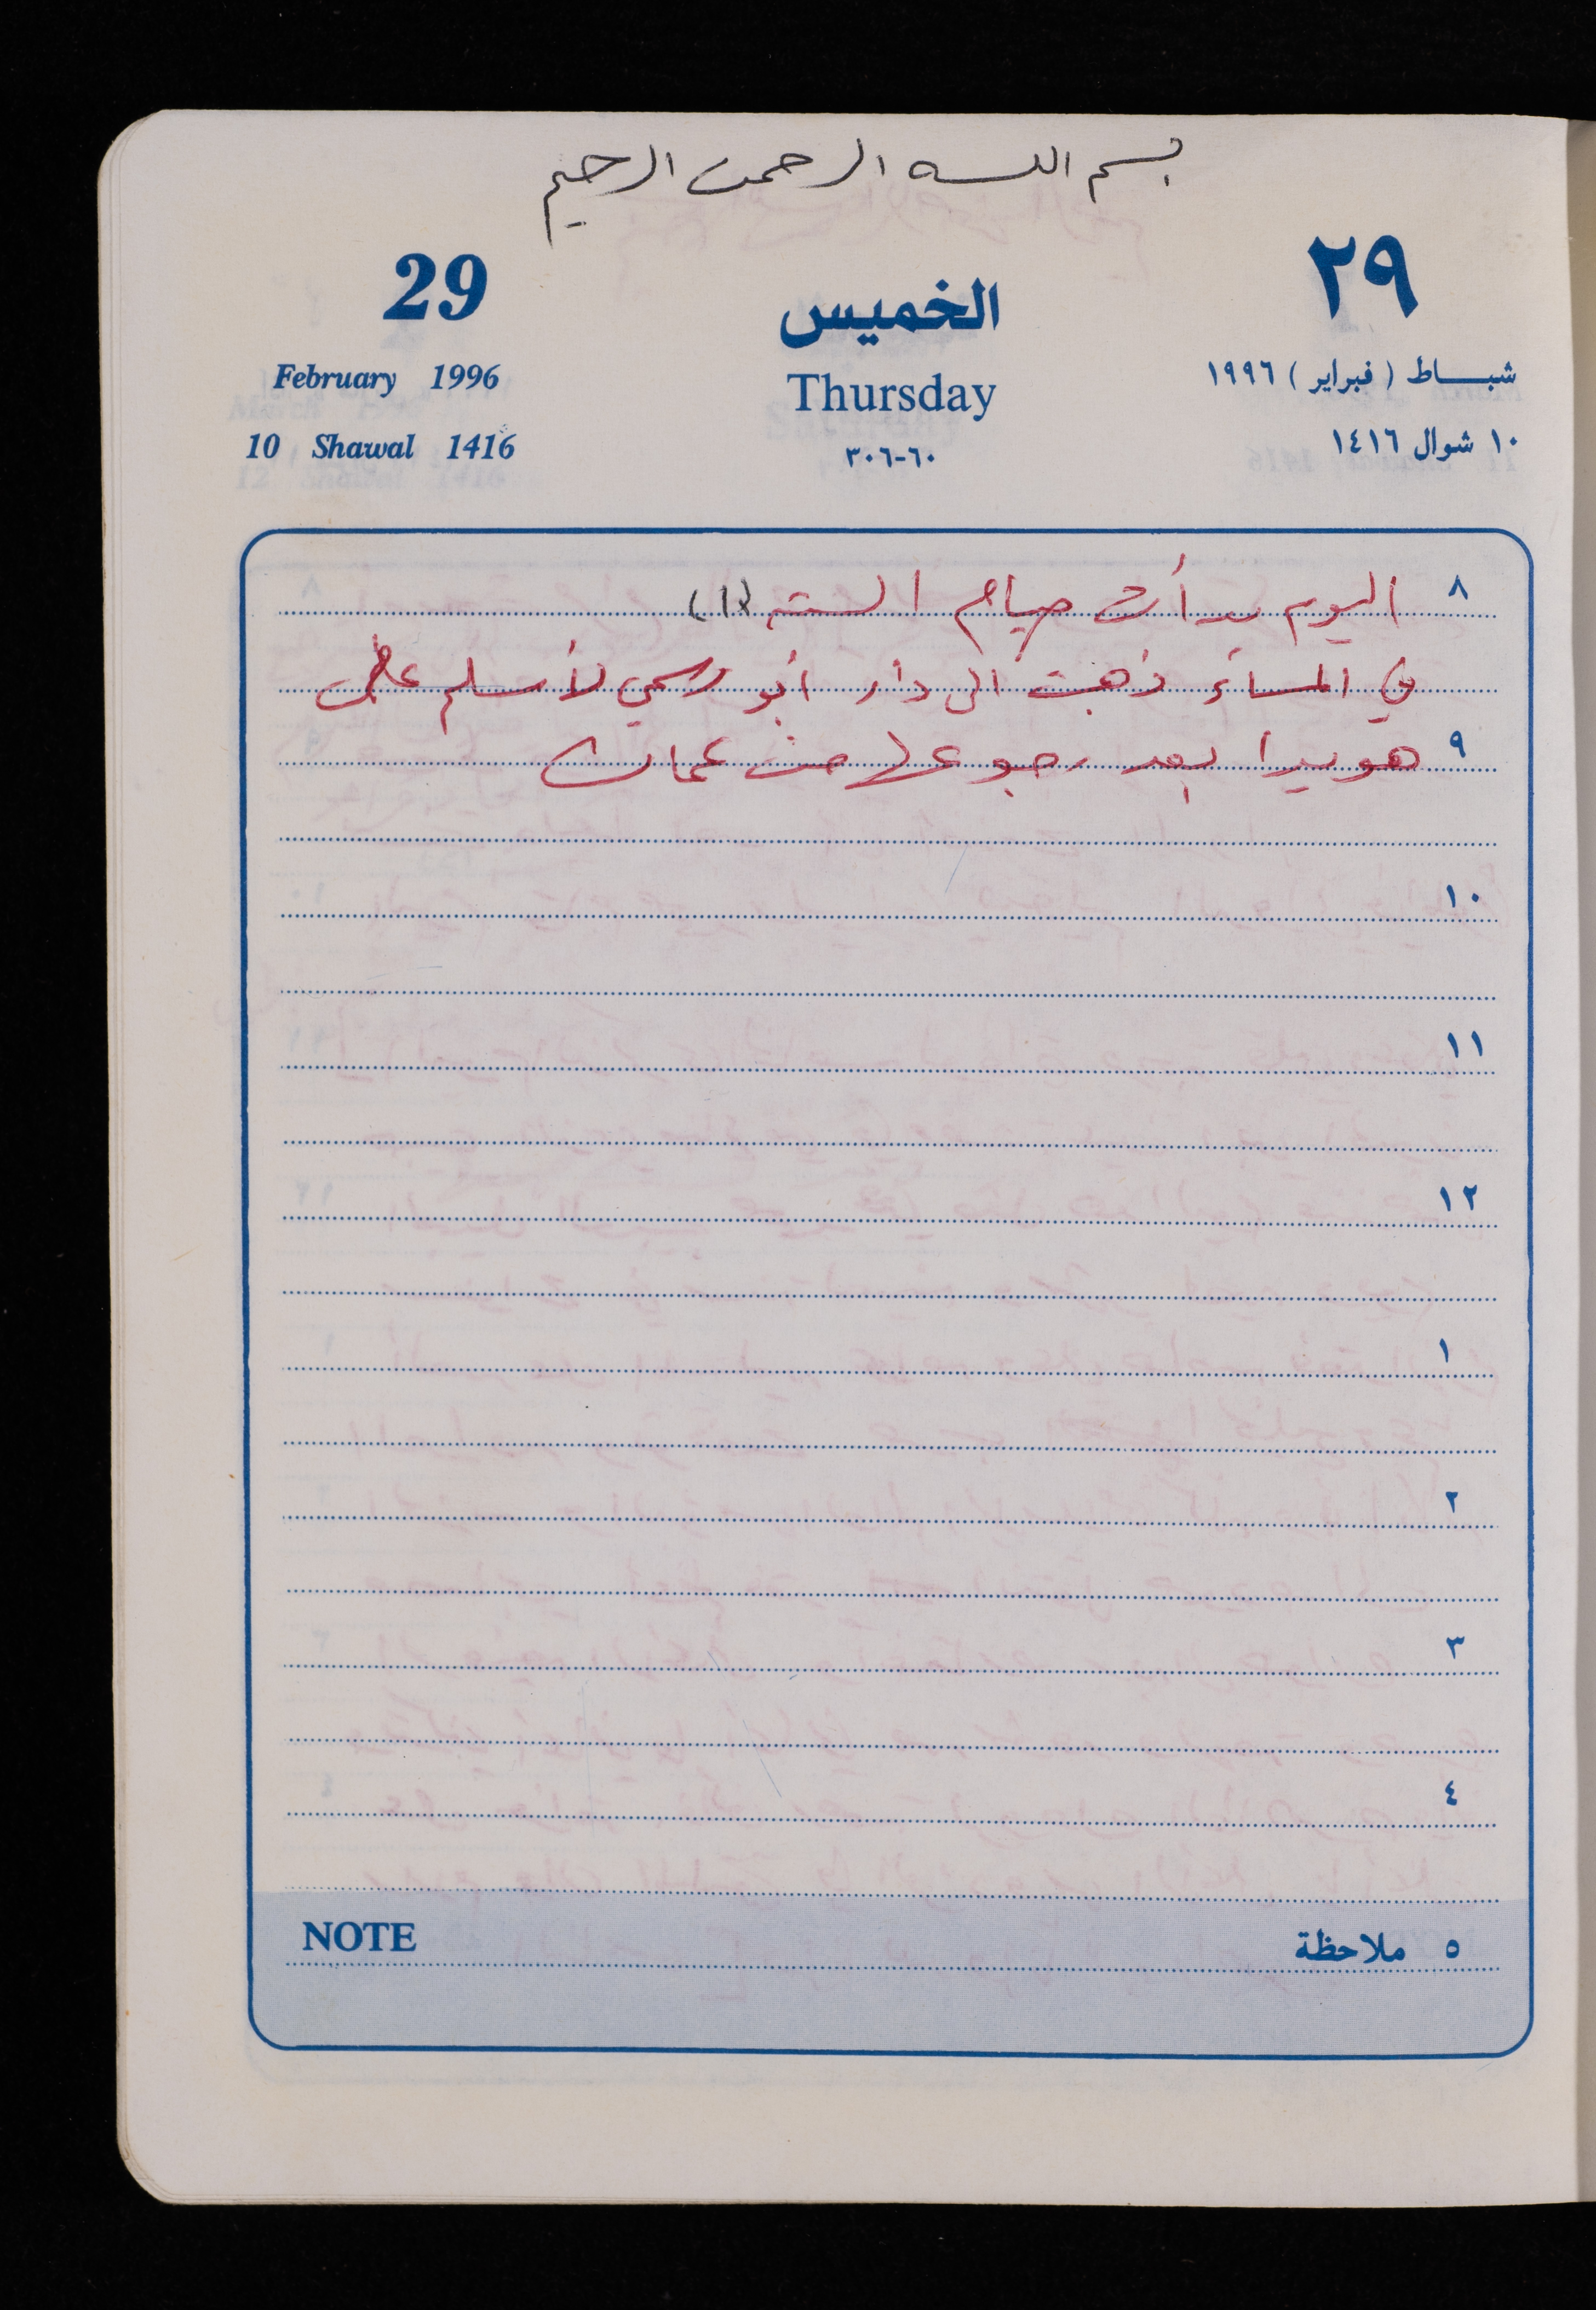 بسم الله الرحمن الرحيم
29 الخميس ٢٩
February 1996 Thursday شباط (فبراير) ١٩٩٦
10 Shawal 1416 ٣٠٦-٦٠ ١٠ شوال ١٤١٦
٨ اليوم بدأت صيام الستة (١)
في المساء ذهبت الى دار أبو رسمي لأسلم على
٩ هويدا بعد رجوعها من عمان
١٠
١١
١٢
١
٢
٣
٤
NOTE ٥ ملاحظة